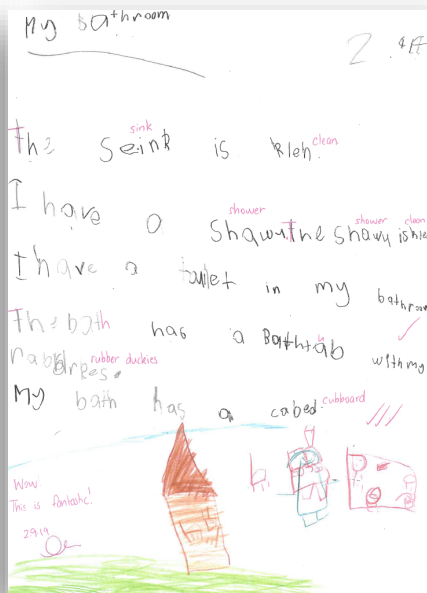 My Bathroom
2
sink clean
The Seink is kleh.
shower shower clean
I have a Shawr. The Shawu is kle
I have a toulet in my bathroom
u
The bath has a Bathtab with my
rubber duckies
cubboard
My bath has a cabed.
Wow
This is fantastic!